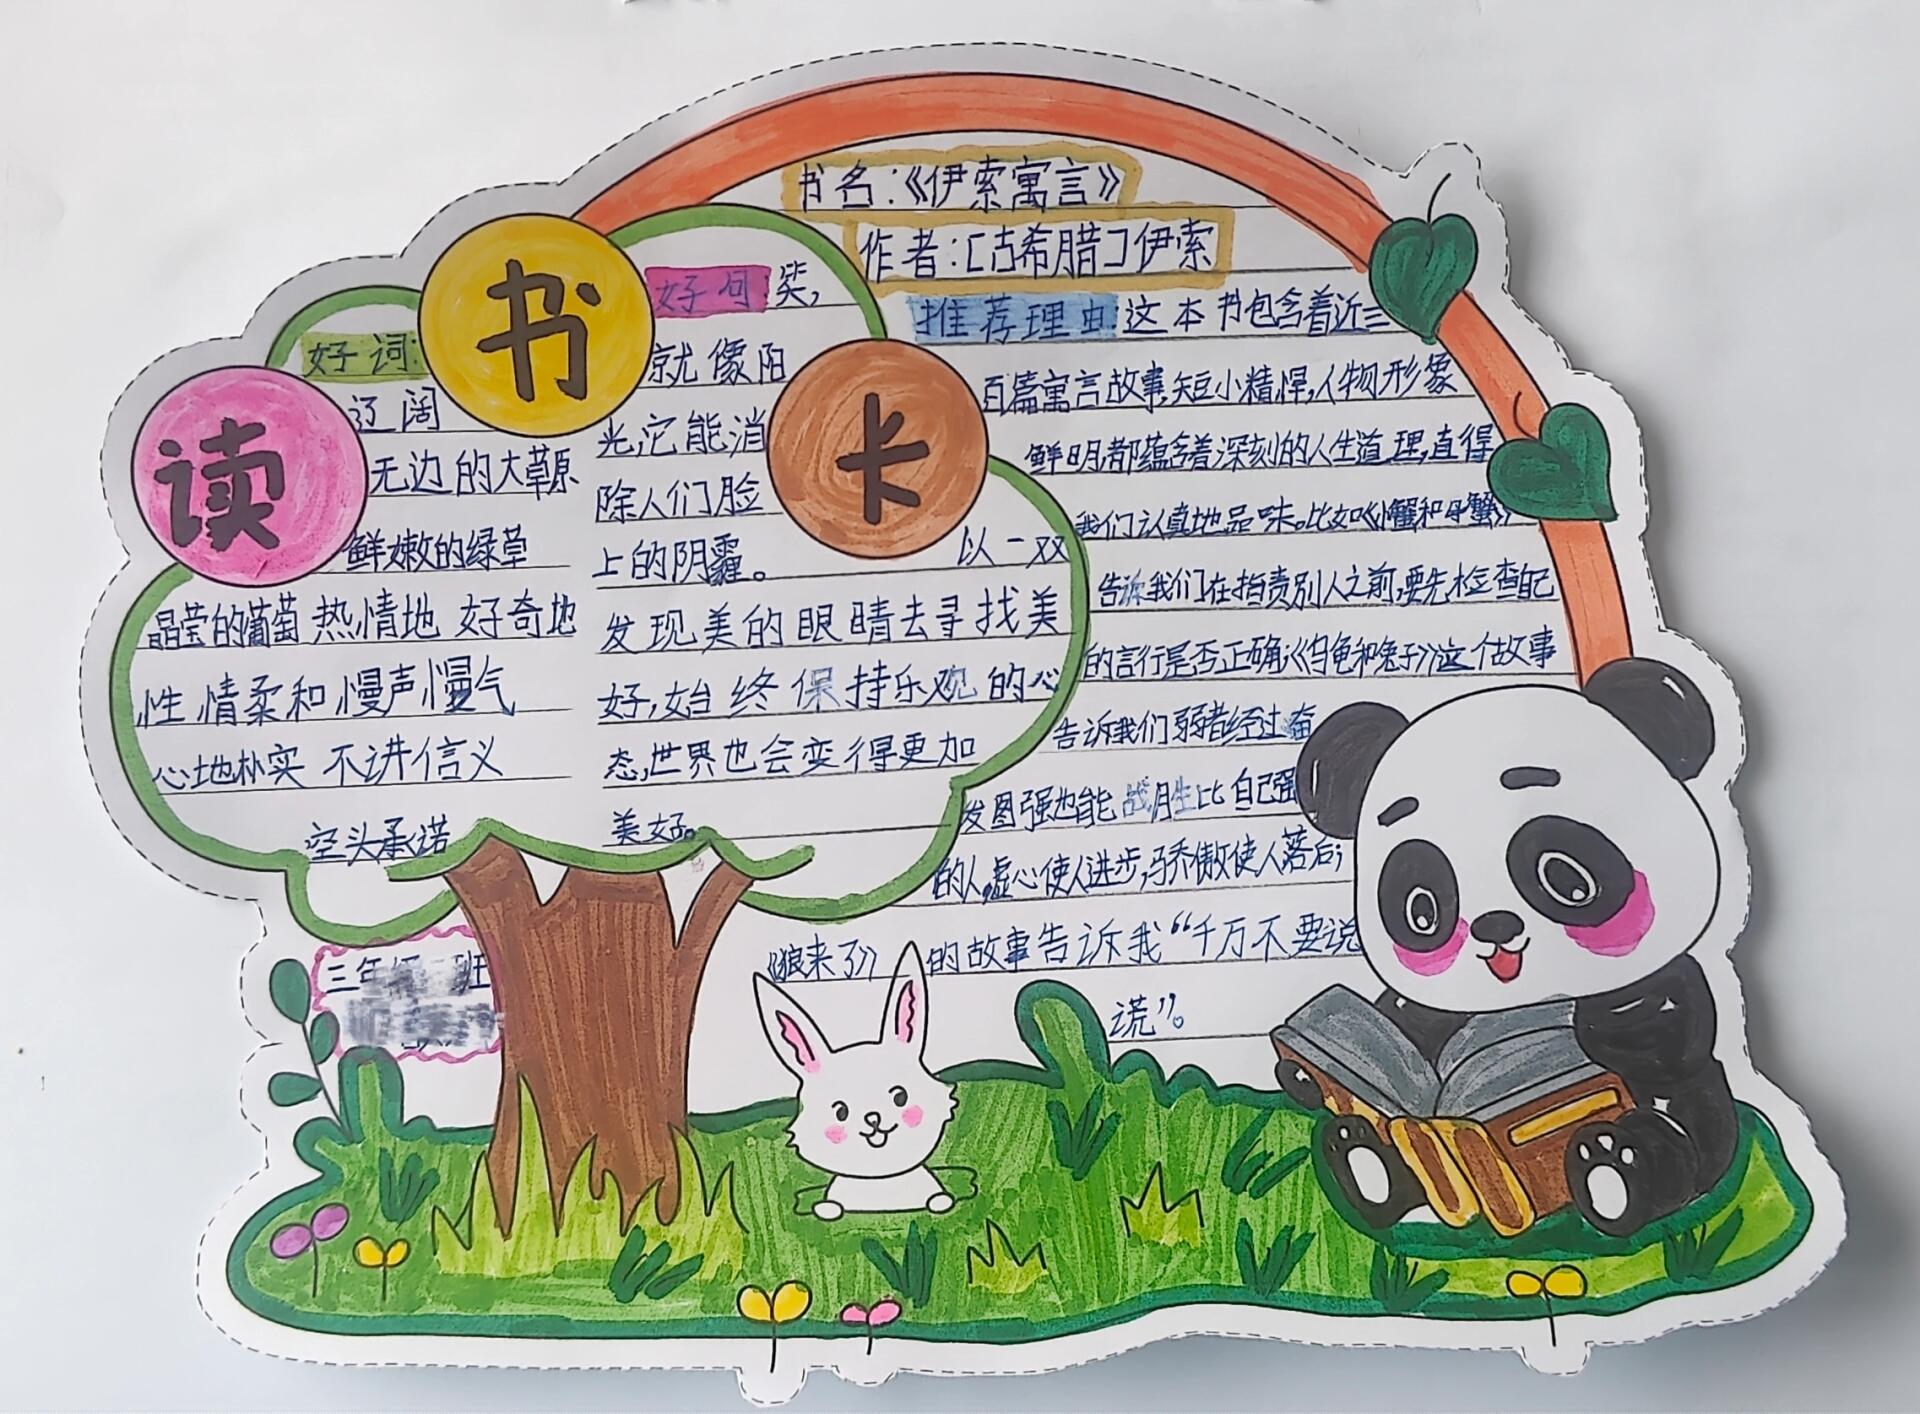 读书卡
书名:《伊索寓言》
作者:[古希腊]伊索
推荐理由 这本书包含着近三
百篇寓言故事,短小精悍,人物形象
鲜明,都蕴含着深刻的人生道理,直得
我们认真地品味。比如《小蟹和母蟹》
告诉我们在指责别人之前,要先检查自己
的言行是否正确;《乌龟和兔子》这个故事
告诉我们弱者经过奋
发图强也能战胜比自己强
的人,虚心使人进步,骄傲使人落后;
《狼来了》的故事告诉我“千万不要说
谎”。
好词:
辽阔
无边的大草原
鲜嫩的绿草
晶莹的葡萄 热情地 好奇地
性情柔和 慢声慢气
心地朴实 不讲信义
空头承诺
好句 笑,
就像阳
光,它能消
除人们脸
上的阴霾。 以一双
发现美的眼睛去寻找美
好,始终保持乐观的心
态,世界也会变得更加
美好。
三年级 班